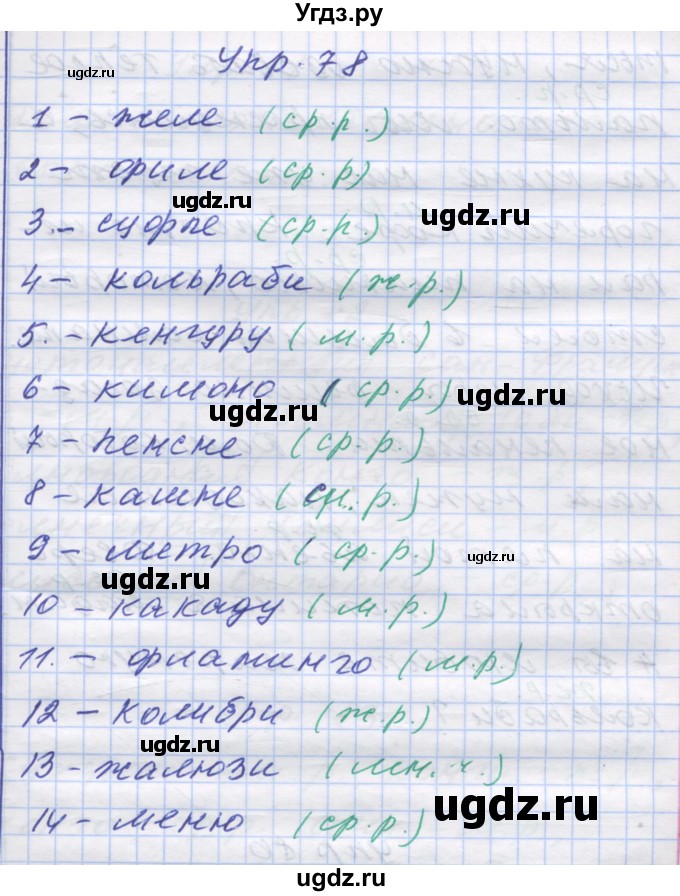 Угдз.ру
Упр. 78
ugdz.ru
1 - желе (ср.р.)
2 - филе (ср.р.)
ugdz.ru
3. - суфле (ср.р.)
ugdz.ru
4 - кольраби (ж.р.)
5. - кенгуру (м.р.)
6 - кимоно (ср.р.)
ugdz.ru
ugdz.ru
7 - пенсне (ср.р.)
8 - кашне (ср.р.)
9 - метро (ср.р.)
ugdz.ru
10 - какаду (м.р.)
11. - фламинго (м.р.)
12 - колибри (ж.р.)
ugdz.ru
13 - жалюзи (мн.ч.)
14 - меню (ср.р.)
ugdz.ru
Угдз.ру